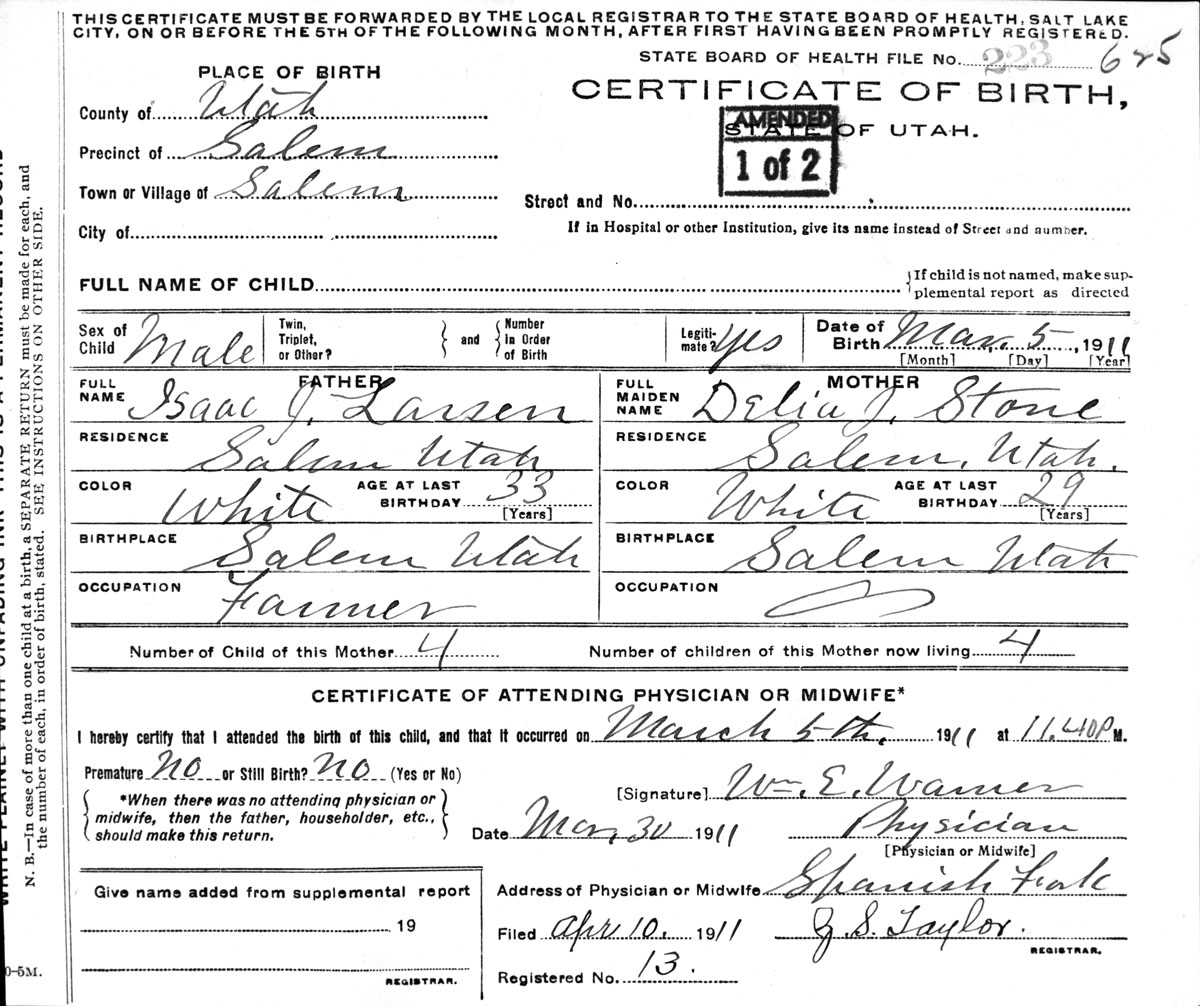 THIS CERTIFICATE MUST BE FORWARDED BY THE LOCAL REGISTRAR TO THE STATE BOARD OF HEALTH, SALT LAKE
CITY, ON OR BEFORE THE 5TH OF THE FOLLOWING MONTH, AFTER FIRST HAVING BEEN PROMPTLY REGISTERED.
STATE BOARD OF HEALTH FILE No. 223 625
PLACE OF BIRTH
CERTIFICATE OF BIRTH,
County of Utah
AMENDED
STATE OF UTAH.
1 of 2
Precinct of Salem
Town or Village of Salem
Street and No.
City of
If in Hospital or other Institution, give its name instead of Street and number.
FULL NAME OF CHILD
If child is not named, make sup-
plemental report as directed
Sex of Child Male
Twin, Triplet, or Other?
and
Number In Order of Birth
Legiti-mate? Yes
Date of Birth Mar. 5, 1911
[Month] [Day] [Year]
FATHER
FULL NAME Isaac J. Larsen
MOTHER
FULL MAIDEN NAME Delia J. Stone
RESIDENCE Salem Utah
RESIDENCE Salem, Utah.
COLOR White AGE AT LAST BIRTHDAY 33 [Years]
COLOR White AGE AT LAST BIRTHDAY 29 [Years]
BIRTHPLACE Salem Utah
BIRTHPLACE Salem Utah
OCCUPATION Farmer
OCCUPATION
Number of Child of this Mother 4
Number of children of this Mother now living 4
CERTIFICATE OF ATTENDING PHYSICIAN OR MIDWIFE*
I hereby certify that I attended the birth of this child, and that it occurred on March 5th, 1911 at 11.40P M.
Premature No or Still Birth? No (Yes or No)
[Signature] Wm. E. Warner
*When there was no attending physician or
midwife, then the father, householder, etc.,
should make this return.
Date Mar, 30 1911
Physician
[Physician or Midwife]
Give name added from supplemental report
19
REGISTRAR.
Address of Physician or Midwife Spanish Fork
Filed Apr 10, 1911
J. S. Taylor.
REGISTRAR.
Registered No. 13.
N. B.—In case of more than one child at a birth, a SEPARATE RETURN must be made for each, and
the number of each, in order of birth, stated. SEE INSTRUCTIONS ON OTHER SIDE.
0-5M.